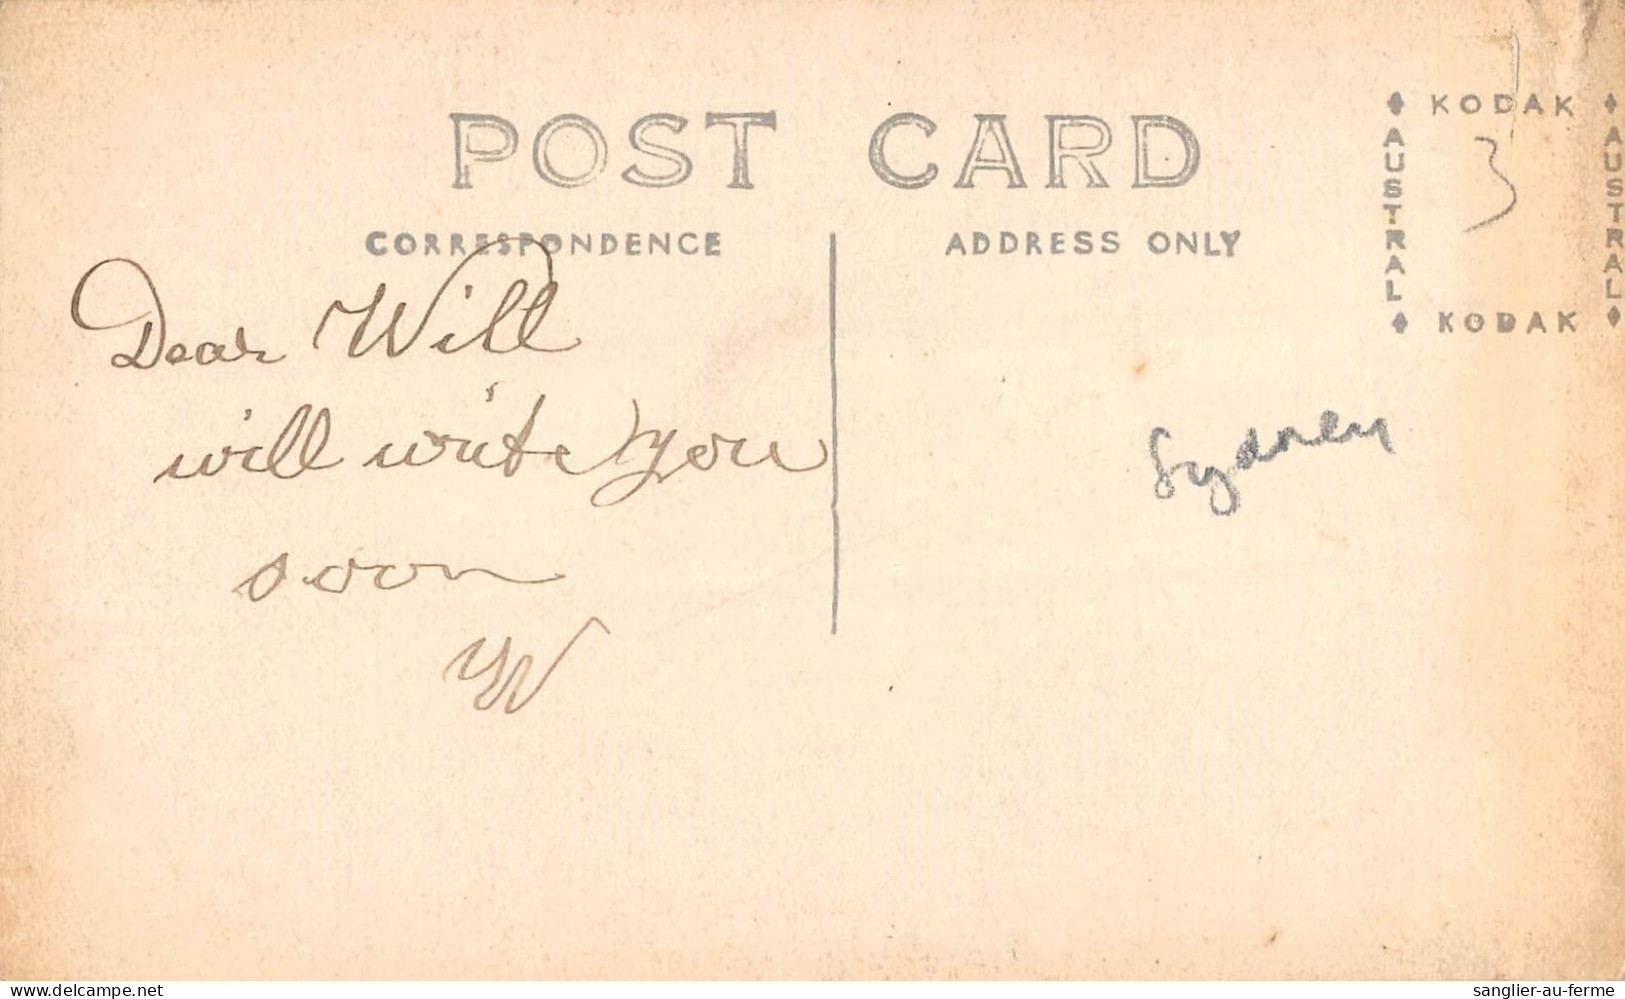 POST CARD
CORRESPONDENCE
ADDRESS ONLY
KODAK
AUSTRAL
AUSTRAL
KODAK
3
Dear Will
will write you
soon
W
Sydney
delcampe.net
sanglier-au-ferme